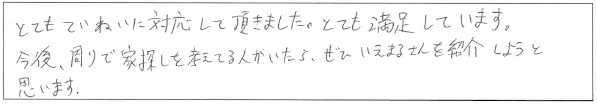 とてもていねいに対応して頂きました。とても満足しています。
今後、周りで家探しを考えてる人がいたら、ぜひいえまるさんを紹介しようと
思います.